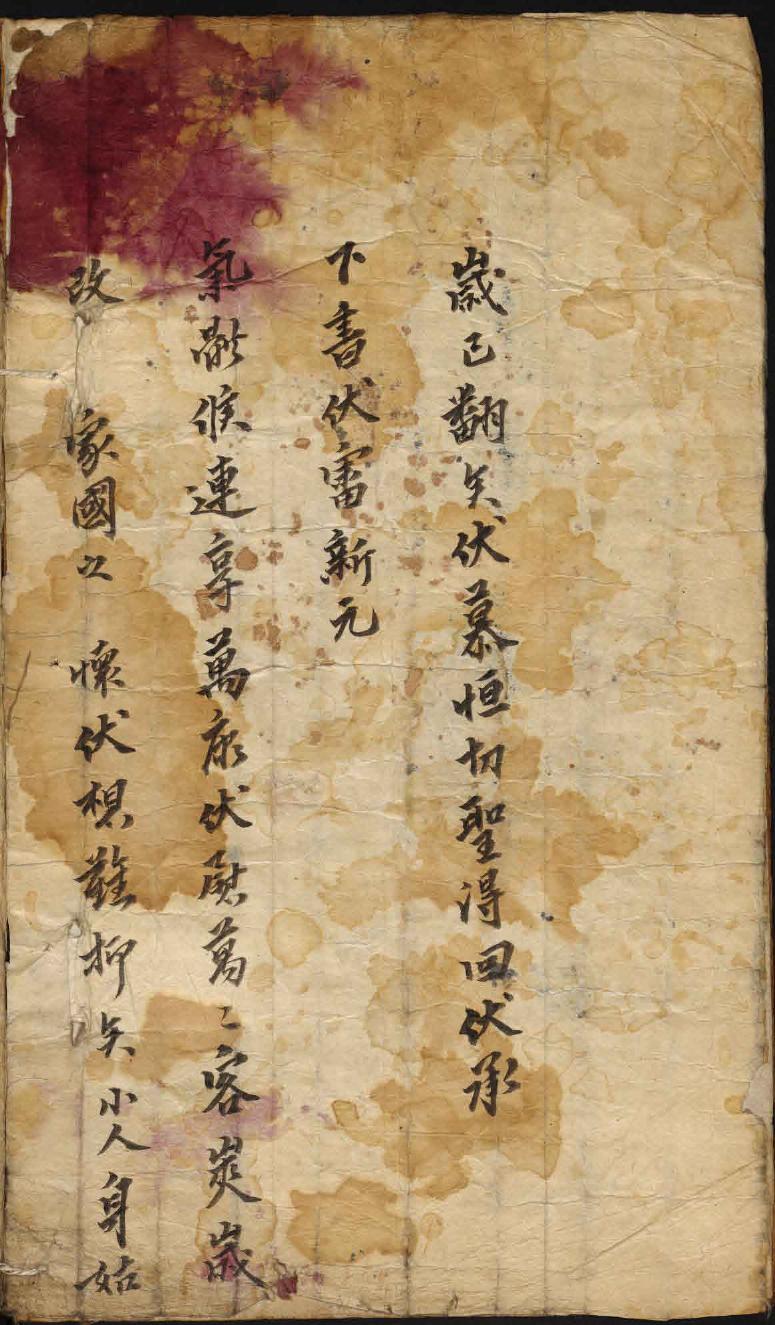 歲已翻矣伏慕恒切聖得回伏承
下書伏審新元
氣候連享萬康伏慰萬〻客歲
改 家國之 懷伏想難抑矣 小人身姑